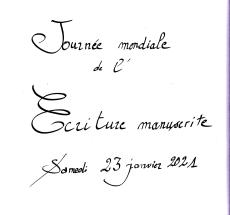 Journée mondiale
de l'
Écriture manuscrite
Samedi 23 janvier 2021